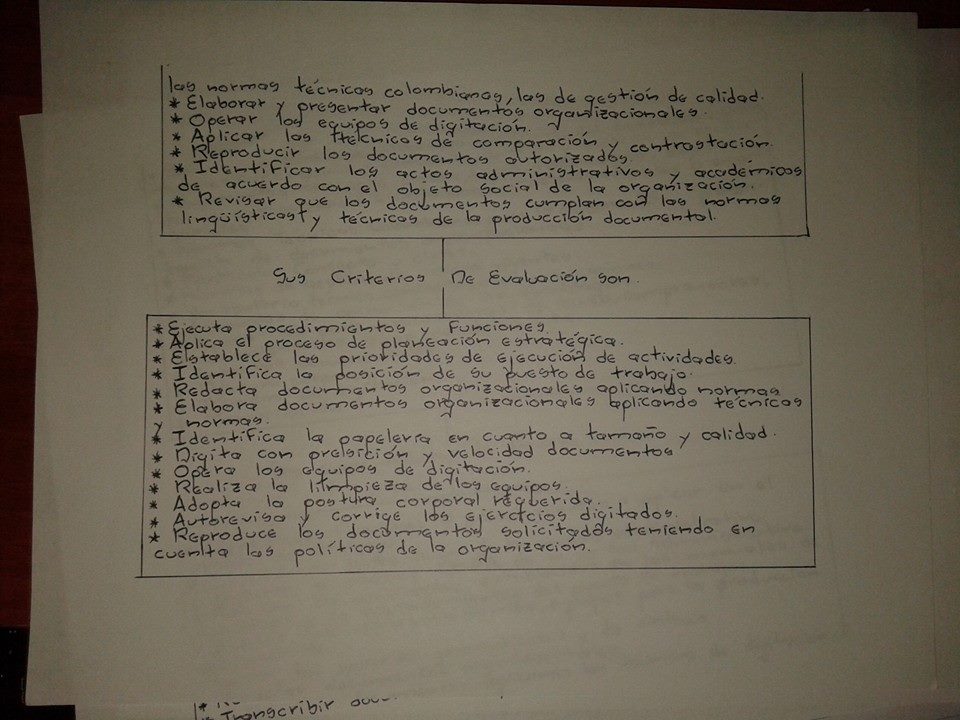 las normas técnicas colombianas, las de gestión de calidad.
* Elaborar y presentar documentos organizacionales.
* Operar los equipos de digitación.
* Aplicar las ttecnicos de comparación y contrastación.
* Reproducir los documentos autorizados.
* Identificar los actos administrativos y académicos
de acuerdo con el objeto social de la organización.
* Revisar que los documentos cumplan con las normas
lingüísticast y técnicas de la producción documental.
Sus Criterios De Evaluación son.
* Ejecuta procedimientos y Funciones.
* Aplica el proceso de planeación estratégica.
* Establece las prioridades de ejecución de actividades.
* Identifica la posición de su puesto de trabajo.
* Redacta documentos organizacionales aplicando normas
* Elabora documentos organizacionales aplicando técnicas
y normas.
* Identifica la papelería en cuanto a tamaño y calidad.
* Digita con presición y velocidad documentos
* Opera los equipos de digitación.
* Realiza la limpieza de los equipos.
* Adopta la postura corporal requerida.
* Autorevisa y corrige los ejercicios digitados.
* Reproduce los documentos solicitados teniendo en
cuenta las políticas de la organización.
* Transcribir